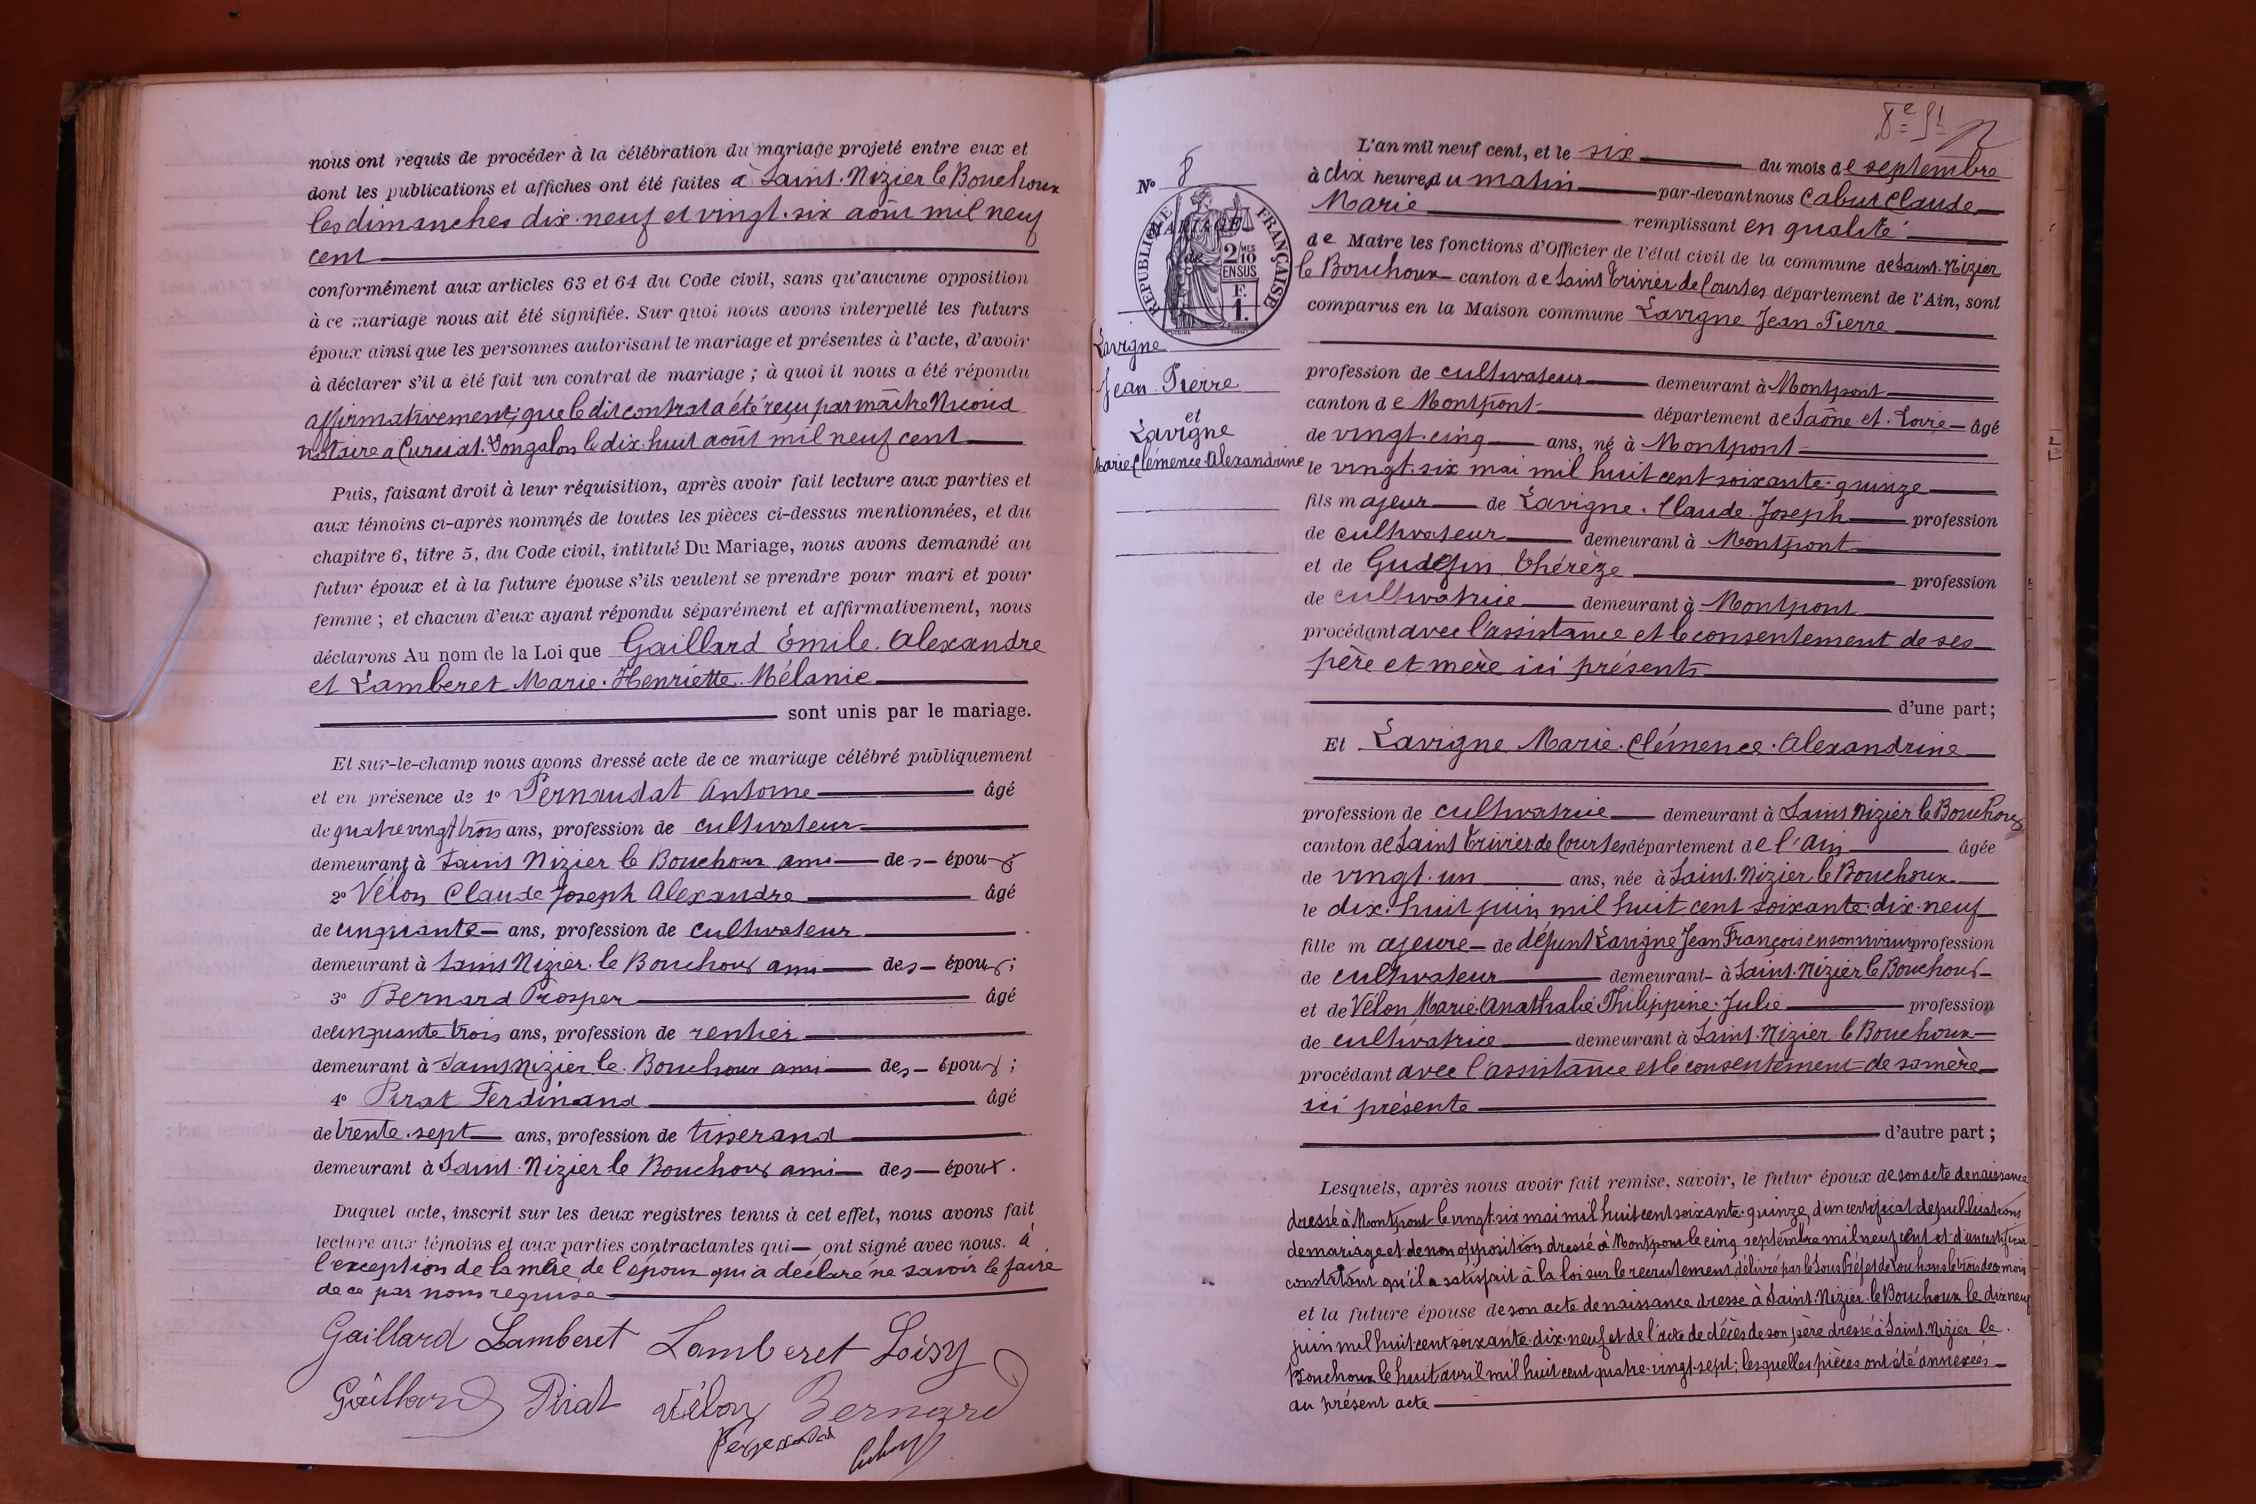 nous ont requis de procéder à la célébration du mariage projeté entre eux et
dont les publications et affiches ont été faites à Saint-Nizier le Bouchoux
les dimanches dix-neuf et vingt-six août mil neuf
cent
conformément aux articles 63 et 64 du Code civil, sans qu'aucune opposition
à ce mariage nous ait été signifiée. Sur quoi nous avons interpellé les futurs
époux ainsi que les personnes autorisant le mariage et présentes à l'acte, d'avoir
à déclarer s'il a été fait un contrat de mariage ; à quoi il nous a été répondu
affirmativement, que le dit contrat a été reçu par maître Nicoud
notaire a Curciat-Dongalon le dix huit août mil neuf cent
Puis, faisant droit à leur réquisition, après avoir fait lecture aux parties et
aux témoins ci-après nommés de toutes les pièces ci-dessus mentionnées, et du
chapitre 6, titre 5, du Code civil, intitulé Du Mariage, nous avons demandé au
futur époux et à la future épouse s'ils veulent se prendre pour mari et pour
femme ; et chacun d'eux ayant répondu séparément et affirmativement, nous
déclarons Au nom de la Loi que Gaillard Émile-Alexandre
et Lamberet Marie-Henriette-Mélanie
sont unis par le mariage.
Et sur-le-champ nous avons dressé acte de ce mariage célébré publiquement
et en présence de 1° Pernaudat Antoine âgé
de quatre vingt trois ans, profession de cultivateur
demeurant à Saint Nizier le Bouchoux ami des époux
2° Vélon Claude Joseph Alexandre âgé
de cinquante ans, profession de cultivateur
demeurant à Saint Nizier le Bouchoux ami des époux ;
3° Bernard Prosper âgé
de cinquante trois ans, profession de rentier
demeurant à Saint Nizier le Bouchoux ami des époux ;
4° Pirat Ferdinand âgé
de trente-sept ans, profession de tisserand
demeurant à Saint-Nizier le Bouchoux ami des époux.
Duquel acte, inscrit sur les deux registres tenus à cet effet, nous avons fait
lecture aux témoins et aux parties contractantes qui ont signé avec nous. à
l'exception de la mère de l'époux qui a déclaré ne savoir le faire
de ce par nous requise
Gaillard Lamberet Lamberet Loisy
Gaillard Pirat Vélon Bernard
Pernaudat Cabut
8e f!
N° 8
MARIAGE
de
RÉPUBLIQUE FRANÇAISE
2/10 EN SUS
F. 1.
Lavigne
Jean-Pierre
et
Lavigne
Marie Clémence-Alexandrine
L'an mil neuf cent, et le six du mois de septembre
à dix heures du matin par-devant nous Cabut Claude
Marie remplissant en qualité
de Maire les fonctions d'Officier de l'état civil de la commune de Saint-Nizier
le Bouchoux canton de Saint Trivier de Courtes département de l'Ain, sont
comparus en la Maison commune Lavigne Jean Pierre
profession de cultivateur demeurant à Montpont
canton de Montpont département de Saône et-Loire âgé
de vingt-cinq ans, né à Montpont
le vingt-six mai mil huit cent soixante-quinze
fils majeur de Lavigne-Claude-Joseph profession
de cultivateur demeurant à Montpont
et de Gudefin Thérèze profession
de cultivatrice demeurant à Montpont
procédant avec l'assistance et le consentement de ses
père et mère ici présents
d'une part ;
Et Lavigne Marie-Clémence-Alexandrine
profession de cultivatrice demeurant à Saint Nizier le Bouchoux
canton de Saint Trivier de Courtes département de l'Ain âgée
de vingt-un ans, née à Saint-Nizier le Bouchoux
le dix-huit juin mil huit cent soixante-dix-neuf
fille majeure de défunt Lavigne Jean François en son vivant profession
de cultivateur demeurant à Saint-Nizier le Bouchoux
et de Vélon Marie-Anathalie Philippine-Julie profession
de cultivatrice demeurant à Saint-Nizier le Bouchoux
procédant avec l'assistance et le consentement de sa mère
ici présente
d'autre part ;
Lesquels, après nous avoir fait remise, savoir, le futur époux de son acte de naissance
dressé à Montpont le vingt-six mai mil huit cent soixante-quinze, d'un certificat de publications
de mariage et de non opposition dressé à Montpont le cinq septembre mil neuf cent et d'un certificat
constatant qu'il a satisfait à la loi sur le recrutement délivré par le Sous Préfet de Louhans le trois de ce mois
et la future épouse de son acte de naissance dressé à Saint-Nizier-le Bouchoux le dix neuf
juin mil huit cent soixante-dix-neuf et de l'acte de décès de son père dressé à Saint-Nizier le
Bouchoux le huit avril mil huit cent quatre-vingt-sept ; lesquelles pièces ont été annexées
au présent acte